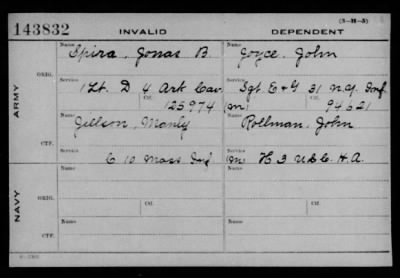 (3-H-5)
143832 INVALID DEPENDENT
Name Name
Spira, Jonas B. Joyce, John
ORIG. Service Service
1 Lt. D 4 Ark Cav. Sgt. E & G 31 N.J. Inf.
Ctf. Ctf.
125974 (m) 94621
ARMY
Name Name
Jellson, Manly Rollman, John
CTF.
C 10 Mass Inf (m) H 3 U.S.C. H.A.
NAVY
Name Ctf. Name Ctf.
ORIG.
Service Service
Name Name
CTF.